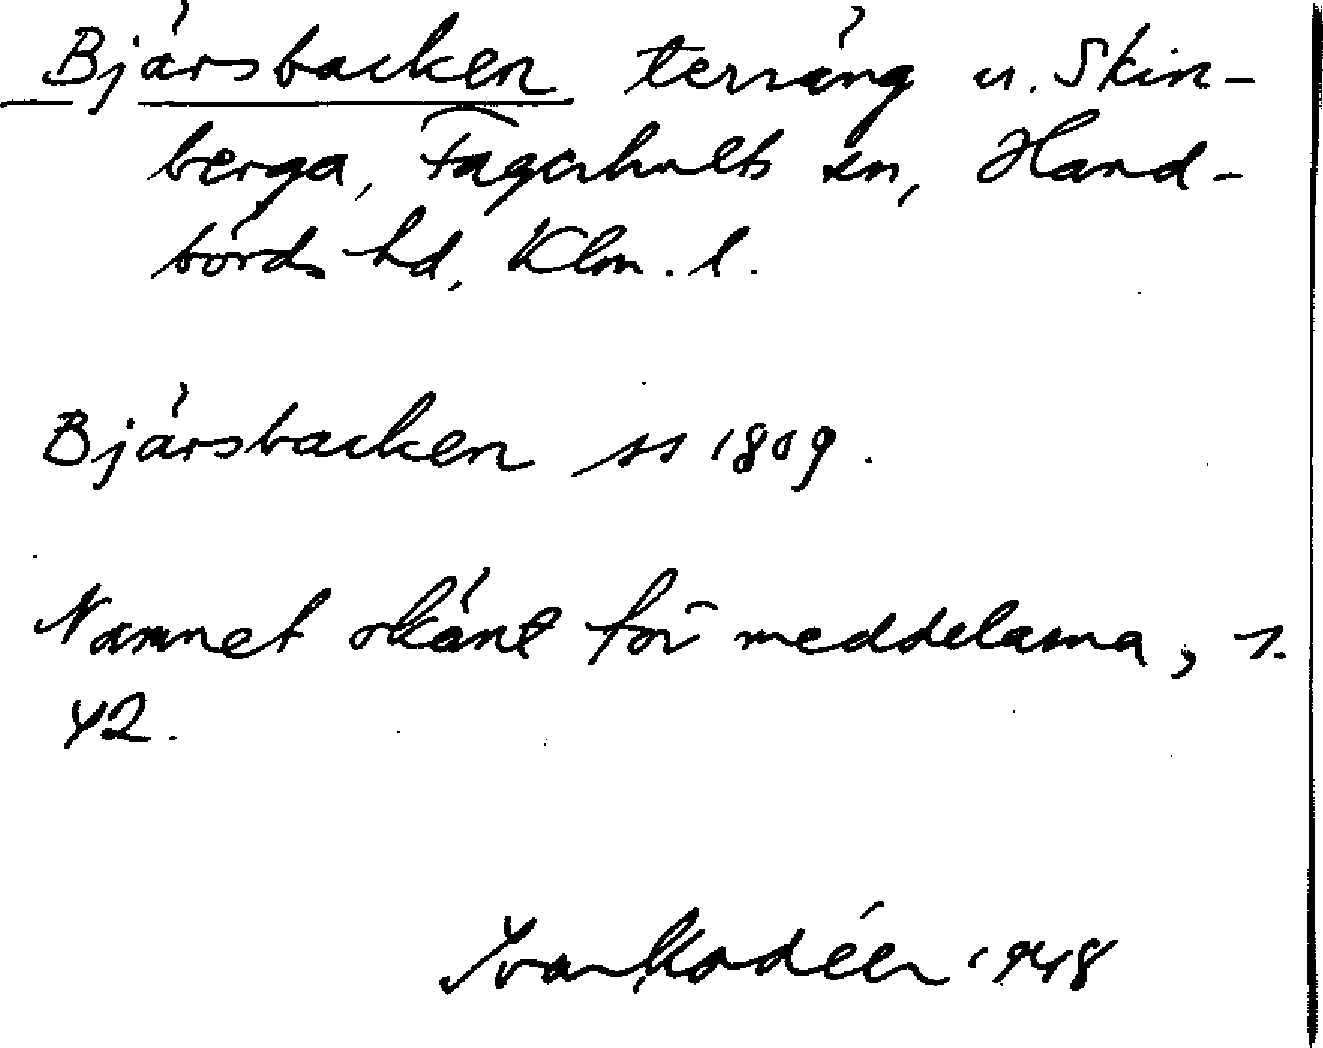 Bjärsbacken terräng u. Skin-
berga, Fagerhults sn, Hand-
börds hd, Klm. l.
Bjärsbacken ss 1809.
Namnet okänt för meddelarna, s.
42.
Ivar Modéer 1948